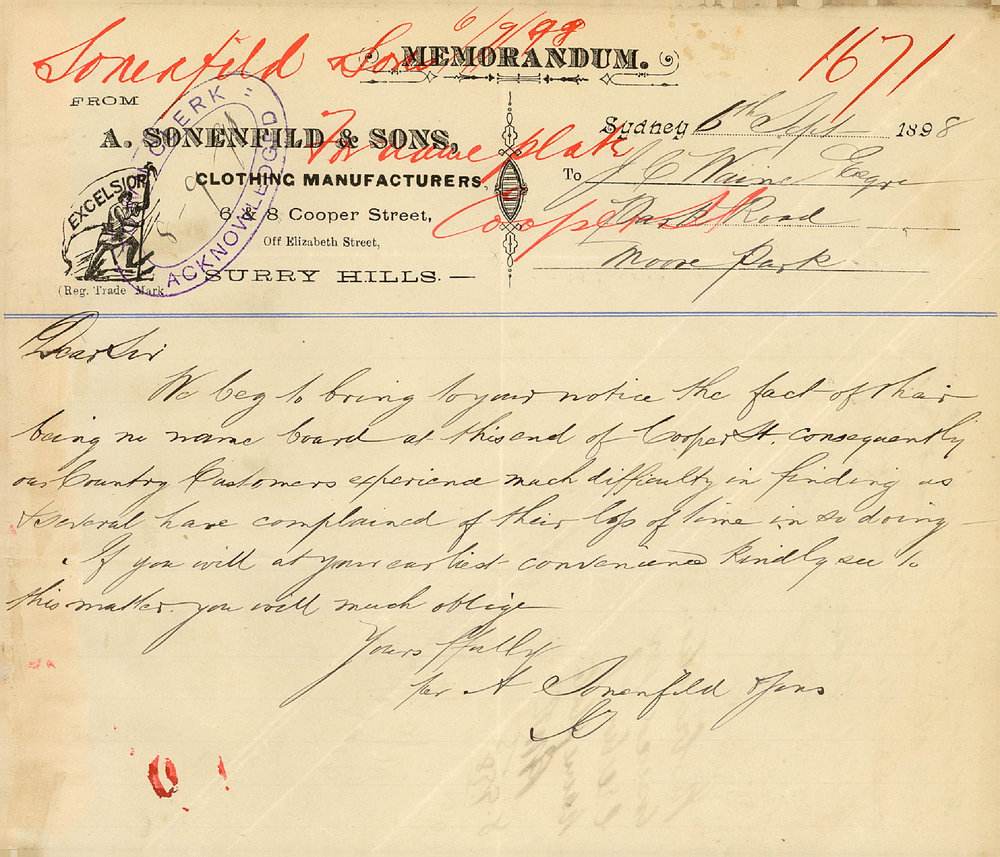 Sonenfild & Sons 6/9/98
1671
MEMORANDUM.
FROM
A. SONENFILD & SONS,
CLOTHING MANUFACTURERS,
6 & 8 Cooper Street,
Off Elizabeth Street,
SURRY HILLS.—
EXCELSIOR
(Reg. Trade Mark
CLERK
ACKNOWLEDGED
For name plate
Cooper St
Sydney 6th Sept 1898
To J C Waine Esqre
Park Road
Moore Park
Dear Sir
We beg to bring to your notice the fact of their
being no name board at this end of Cooper St. consequently
our Country Customers experience much difficulty in finding us
& several have complained of their loss of time in so doing —
If you will at your earliest convenience kindly see to
this matter you will much oblige
Yours ffully
per A Sonenfild & Sons